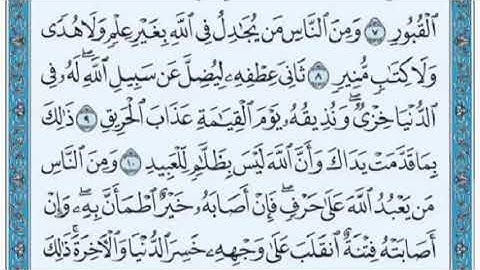 ٱلْقُبُورِ ٧ وَمِنَ ٱلنَّاسِ مَن يُجَٰدِلُ فِى ٱللَّهِ بِغَيْرِ عِلْمٍ وَلَا هُدًى
وَلَا كِتَٰبٍ مُّنِيرٍ ٨ ثَانِىَ عِطْفِهِۦ لِيُضِلَّ عَن سَبِيلِ ٱللَّهِ لَهُۥ فِى
ٱلدُّنْيَا خِزْىٌ وَنُذِيقُهُۥ يَوْمَ ٱلْقِيَٰمَةِ عَذَابَ ٱلْحَرِيقِ ٩ ذَٰلِكَ
بِمَا قَدَّمَتْ يَدَاكَ وَأَنَّ ٱللَّهَ لَيْسَ بِظَلَّٰمٍ لِّلْعَبِيدِ ١٠ وَمِنَ ٱلنَّاسِ
مَن يَعْبُدُ ٱللَّهَ عَلَىٰ حَرْفٍ فَإِنْ أَصَابَهُۥ خَيْرٌ ٱطْمَأَنَّ بِهِۦ وَإِنْ
أَصَابَتْهُ فِتْنَةٌ ٱنقَلَبَ عَلَىٰ وَجْهِهِۦ خَسِرَ ٱلدُّنْيَا وَٱلْءَاخِرَةَ ذَٰلِكَ